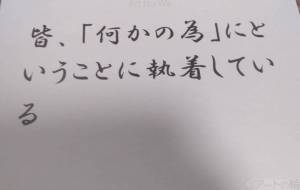 皆、「何かの為」にと
いうことに執着してい
る